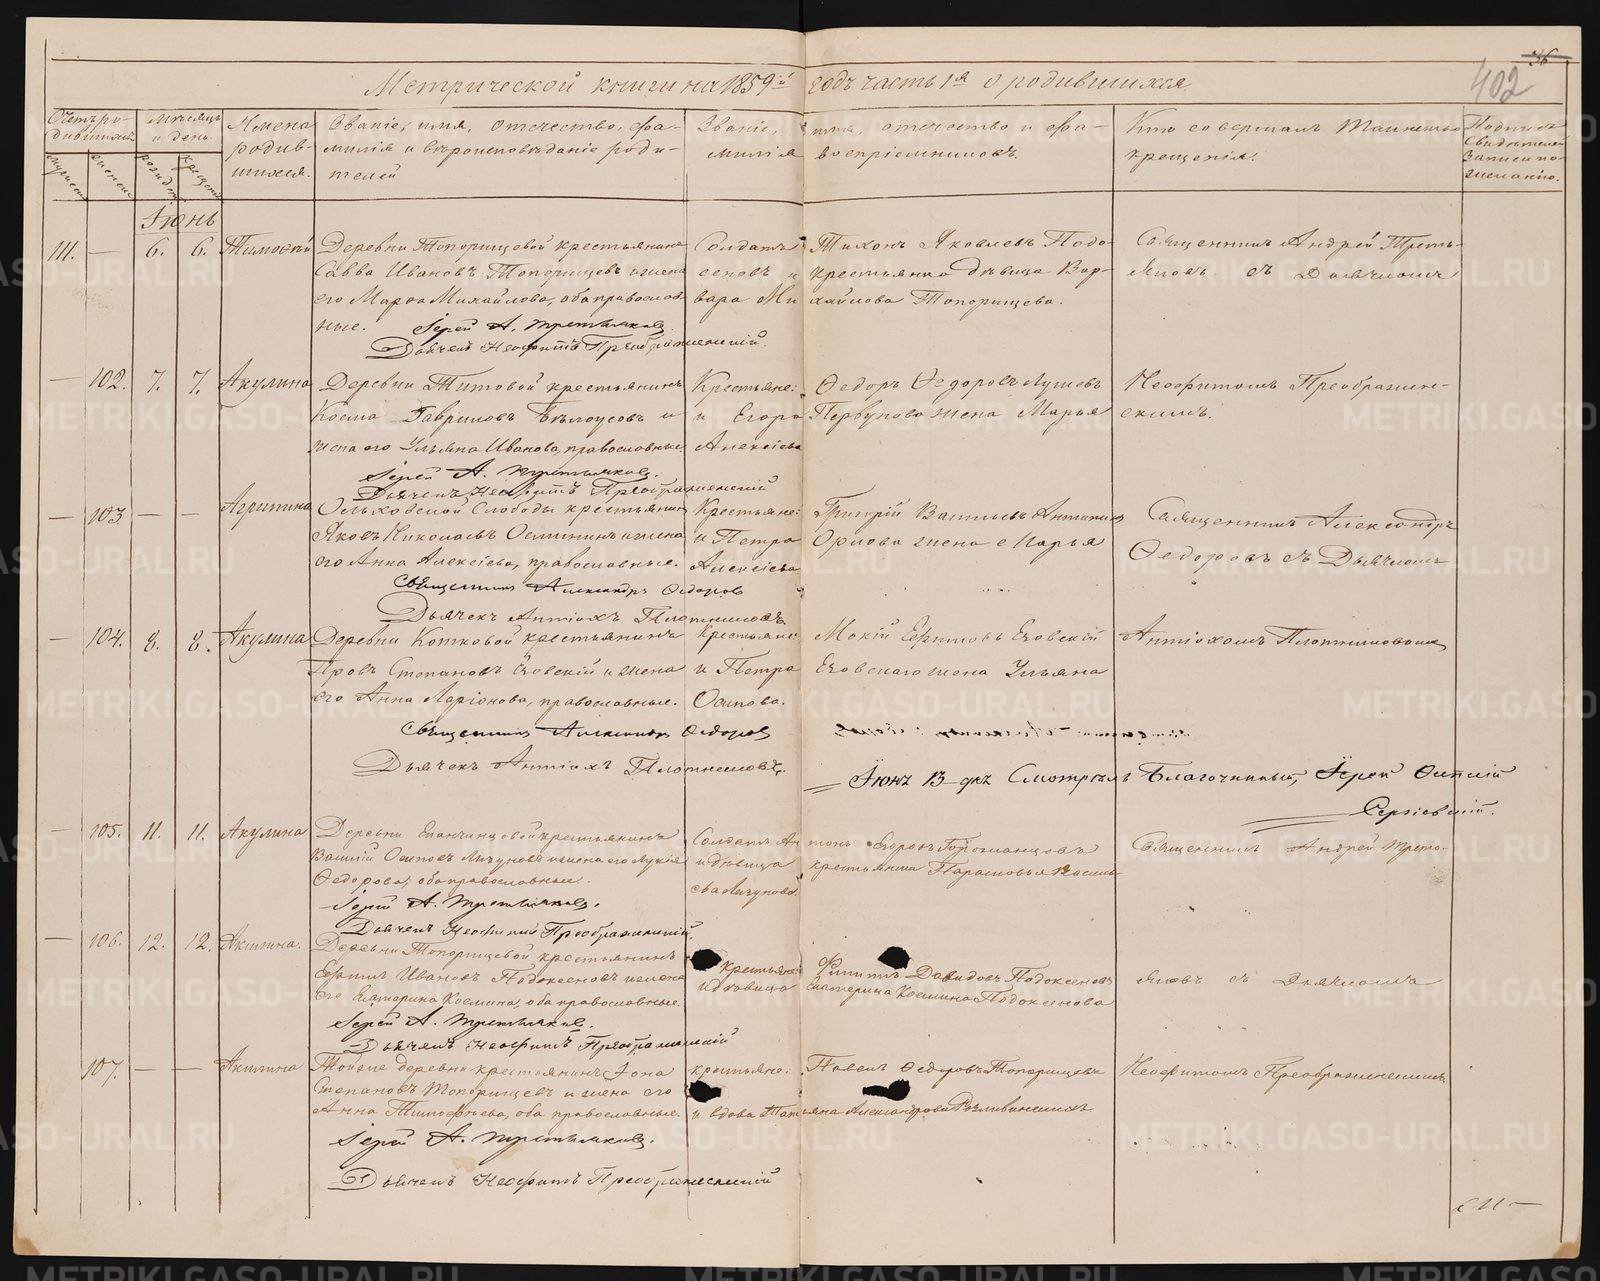 36
402
Метрической книги на 1859й годъ часть 1я о родившихся.
Счетъ ро-
дившихся.
Мѣсяцъ
и день.
Имена
родив-
шихся.
Званіе, имя, отечество, фа-
милія и вѣроисповѣданіе роди-
телей
Званіе, имя, отечество и фа-
милія воспріемниковъ.
Кто совершалъ Таинство
крещенія.
рожден.
крещенія
Іюнь
111. — 6. 6. Тимофей
Деревни Топорищевой крестьянинъ
Савва Ивановъ Топорищевъ и жена
его Марѳа Михайлова, оба православ-
ные.
Іерей А. Третьяковъ.
Дьячекъ Неофитъ Преображенскій.
Солдатъ Тихонъ Яковлевъ Подо-
ксеновъ и крестьянка дѣвица Вар-
вара Михайлова Топорищева.
Священникъ Андрей Треть-
яковъ съ Дьячкомъ
— 102. 7. 7. Акулина
Деревни Титовой крестьянинъ
Косма Гавриловъ Бѣлоусовъ и
жена его Ульяна Иванова, православные.
Іерей А. Третьяковъ.
Дьячекъ Неофитъ Преображенскій
Крестьяне: Ѳедоръ Ѳедоровъ
и Егора Первунова жена Марья
Алексіева
Неофитомъ Преображен-
скимъ.
— 103 — — Агрипина
Ольховской Слободы крестьянинъ
Яковъ Николаевъ и жена
его Анна Алексіева, православные.
Священникъ Александръ Ѳедоровъ
Дьячекъ Антіохъ Плотниковъ
Крестьяне: Григорій Васильевъ
и Петра Орлова жена Марья
Алексіева
Священникъ Александръ
Ѳедоровъ съ Дьячкомъ
— 104. 8. 8. Акулина
Деревни Котковой крестьянинъ
Провъ Степановъ Ековскій и жена
его Анна Ларіонова, православные.
Священникъ Александръ Ѳедоровъ
Дьячекъ Антіохъ Плотниковъ.
Крестьяне Мокій Ефимовъ Ековскій
и Петра Ековскаго жена Ульяна
Осипова.
Антіохомъ Плотниковымъ
Іюня 13 дня Смотрѣлъ Благочинный, Іерей
Сергіевскій.
— 105. 11. 11. Акулина
Деревни крестьянинъ
Василій Осиповъ Лагуновъ и жена его Лукія
Ѳедорова, оба православные.
Іерей А. Третьяковъ.
Дьячекъ Неофитъ Преображенскій.
Солдатъ Антонъ Егоровъ
и дѣвица крестьянка Парасковья Василь-
ева Лагунова
Священникъ Андрей Треть-
— 106. 12. 12. Акилина.
Деревни Топорищевой крестьянинъ
Ефимъ Ивановъ Подоксеновъ и жена
его Екатерина Космина, оба православные.
Іерей А. Третьяковъ.
Дьячекъ Неофитъ Преображенскій
крестьяне: Филиппъ Давидовъ Подоксеновъ
и дѣвица Екатерина Космина Подоксенова
яковъ съ Дьячкомъ
107. — — Акилина
Той же деревни крестьянинъ Іона
Степановъ Топорищевъ и жена его
Анна Тимофѣева, оба православные.
Іерей А. Третьяковъ.
Дьячекъ Неофитъ Преображенскій
крестьяне: Павелъ Ѳедоровъ Топорищевъ
и вдова Татьяна Александрова
Неофитомъ Преображенскимъ.
METRIKI.GASO-URAL.RU